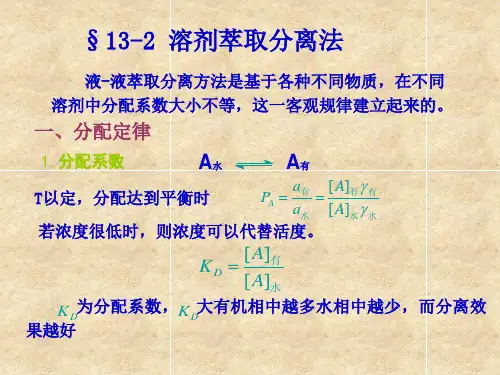 §13-2 溶剂萃取分离法
液-液萃取分离方法是基于各种不同物质，在不同
溶剂中分配系数大小不等，这一客观规律建立起来的。
一、分配定律
1. 分配系数 A水 ⇌ A有
T以定，分配达到平衡时 P_A = a有/a水 = [A]有γ有/[A]水γ水
若浓度很低时，则浓度可以代替活度。
K_D = [A]有/[A]水
K_D为分配系数，K_D大有机相中越多水相中越少，而分离效
果越好